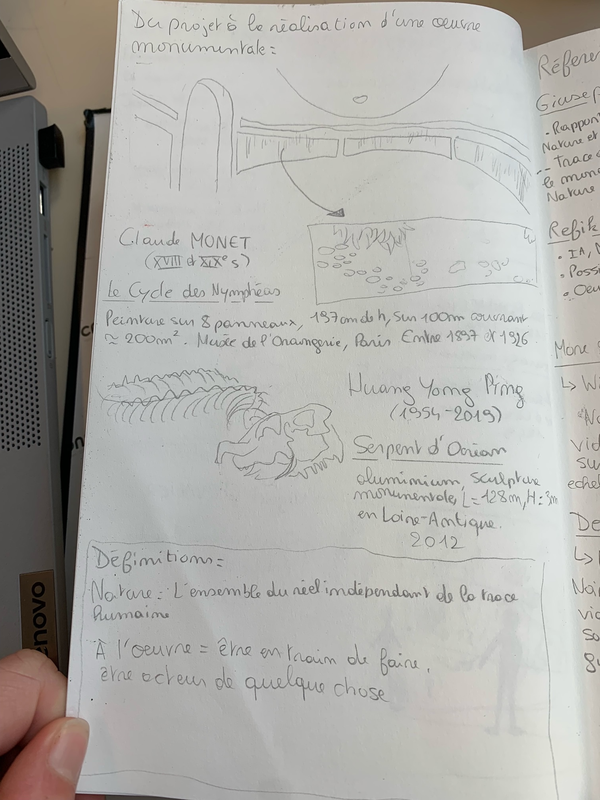 Du projet à la réalisation d'une œuvre
monumentale =
Claude MONET
(XVIII et XIXe s)
Le Cycle des Nymphéas
Peinture sur 8 panneaux, 197cm de h, sur 100m couvrant
≈ 200m². Musée de l'Orangerie, Paris Entre 1897 et 1926
Huang Yong Ping
(1954-2019)
Serpent d'Océan
aluminium, sculpture
monumentale, L=128m, H=3m
en Loire-Antique.
2012
Définitions =
Nature = L'ensemble du réel indépendant de la trace
humaine
À l'oeuvre = être en train de faire,
être acteur de quelque chose
Giusep
- Rappor
Nature et
- Trace
le
Nature
Refik
• IA,
• Possi
• Oeu
↳ Wi
vid
sur
echel
De
novo